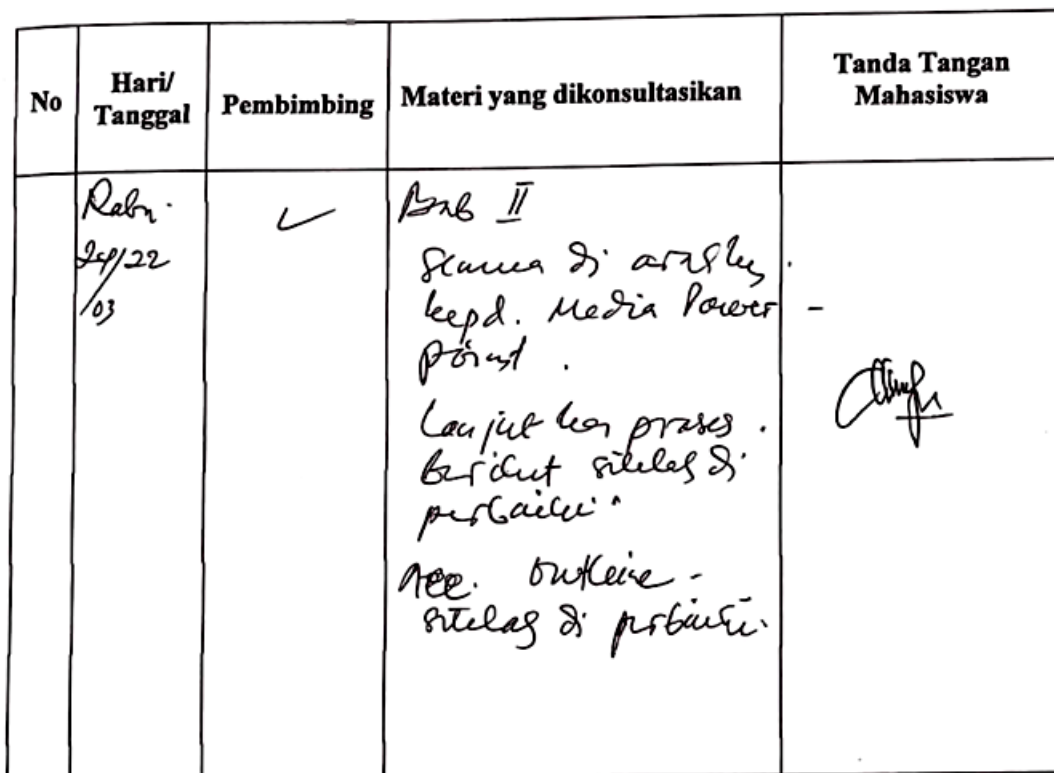 No
Hari/
Tanggal
Pembimbing
Materi yang dikonsultasikan
Tanda Tangan
Mahasiswa
Rabu.
/22
/03
✓
Bab II
Semua di arahkn.
kepd. Media Power -
Point.
Lanjut kan proses.
berikut setelah di
perbaiki.
Acc. Outline -
setelah di perbaiki.